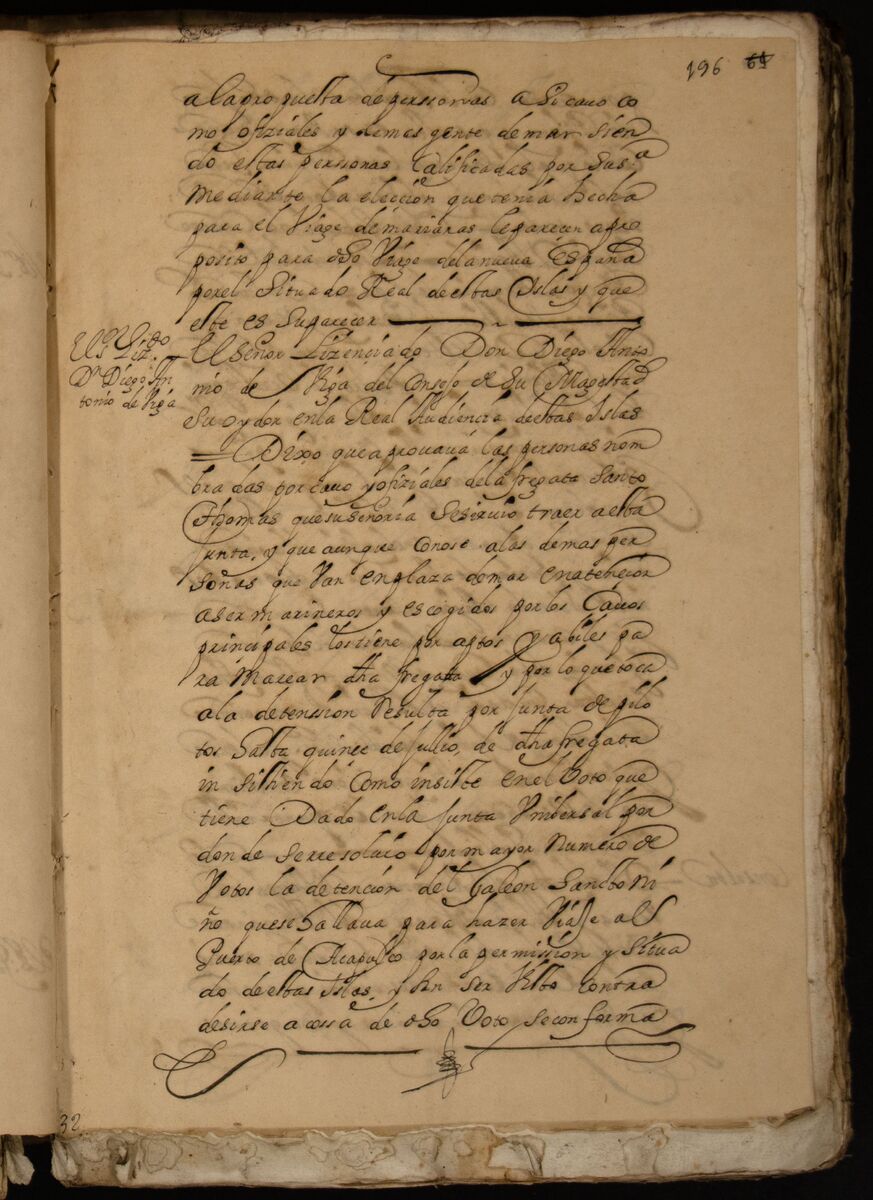 196 64
a la propuesta de perssonas asi cauo co
mo ofiziales y demas gente de mar sien
do estas perssonas Calificadas por su sª
Mediante la eleccion que tenia hecha
para el Viage de marianas le parecen apro
posito para dho Viage de la nueva España
por el Situado Real de estas Islas y que
este es su parecer
El Sr Liz.do
Dn Diego An
tonio de Viga
El señor Lizenciado Don Diego Anto
nio de Viga del Consejo de Su Magestad
Su oydor en la Real Audiencia destas Islas
Dixo que aprouaua las personas nom
bradas por cauo y ofiziales de la fregata Santo
Thomas que su señoria se siruio traer a esta
Junta, y que aunque conose a las demas per
sonas que Van en plaza de mar en atencion
a ser marineros y escogidos por los Cauos
principales los tiene por aptos y abiles pa
ra Marear dha fregata y por lo que toca
a la detension Resulta por Junta de pilo
tos hasta quinze de Jullio, de dha fregata
insistiendo como insiste en el Voto que
tiene Dado en la Junta Vnibersal por
donde se resoluio por mayor Numero de
Votos la detencion del Galeon Sancto Ni
ño que se hallaua para hazer Viaje al
Puerto de Acapulco por la permission y situa
do de estas Islas, y sin ser Visto contra
desirse a cossa de dho Voto se conforma
32